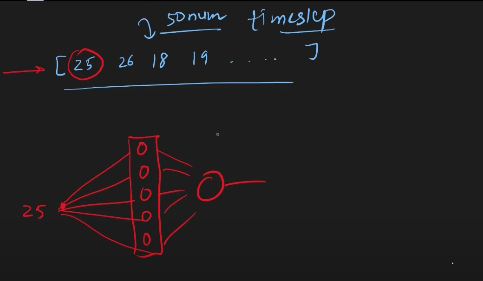 50num timestep
[ 25 26 18 19 . . . . ]
25